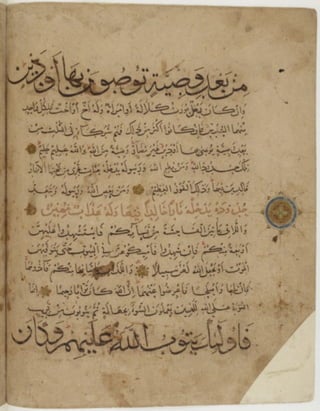 من بعد وصية توصون بها أو دين
وإن كان رجل يورث كلالة أو امرأة وله أخ أو أخت فلكل واحد
منهما السدس فإن كانوا أكثر من ذلك فهم شركاء في الثلث من
بعد وصية يوصى بها أو دين غير مضار وصية من الله والله عليم حليم
تلك حدود الله ومن يطع الله ورسوله يدخله جنات تجري من تحتها الأنهار
خالدين فيها وذلك الفوز العظيم ومن يعص الله ورسوله ويتعد
حدوده يدخله نارا خالدا فيها وله عذاب مهين
واللاتي يأتين الفاحشة من نسائكم فاستشهدوا عليهن
أربعة منكم فإن شهدوا فأمسكوهن في البيوت حتى يتوفاهن
الموت أو يجعل الله لهن سبيلا واللذان يأتيانها منكم فآذوهما
فإن تابا وأصلحا فأعرضوا عنهما إن الله كان توابا رحيما إنما
التوبة على الله للذين يعملون السوء بجهالة ثم يتوبون من قريب
فأولئك يتوب الله عليهم وكان